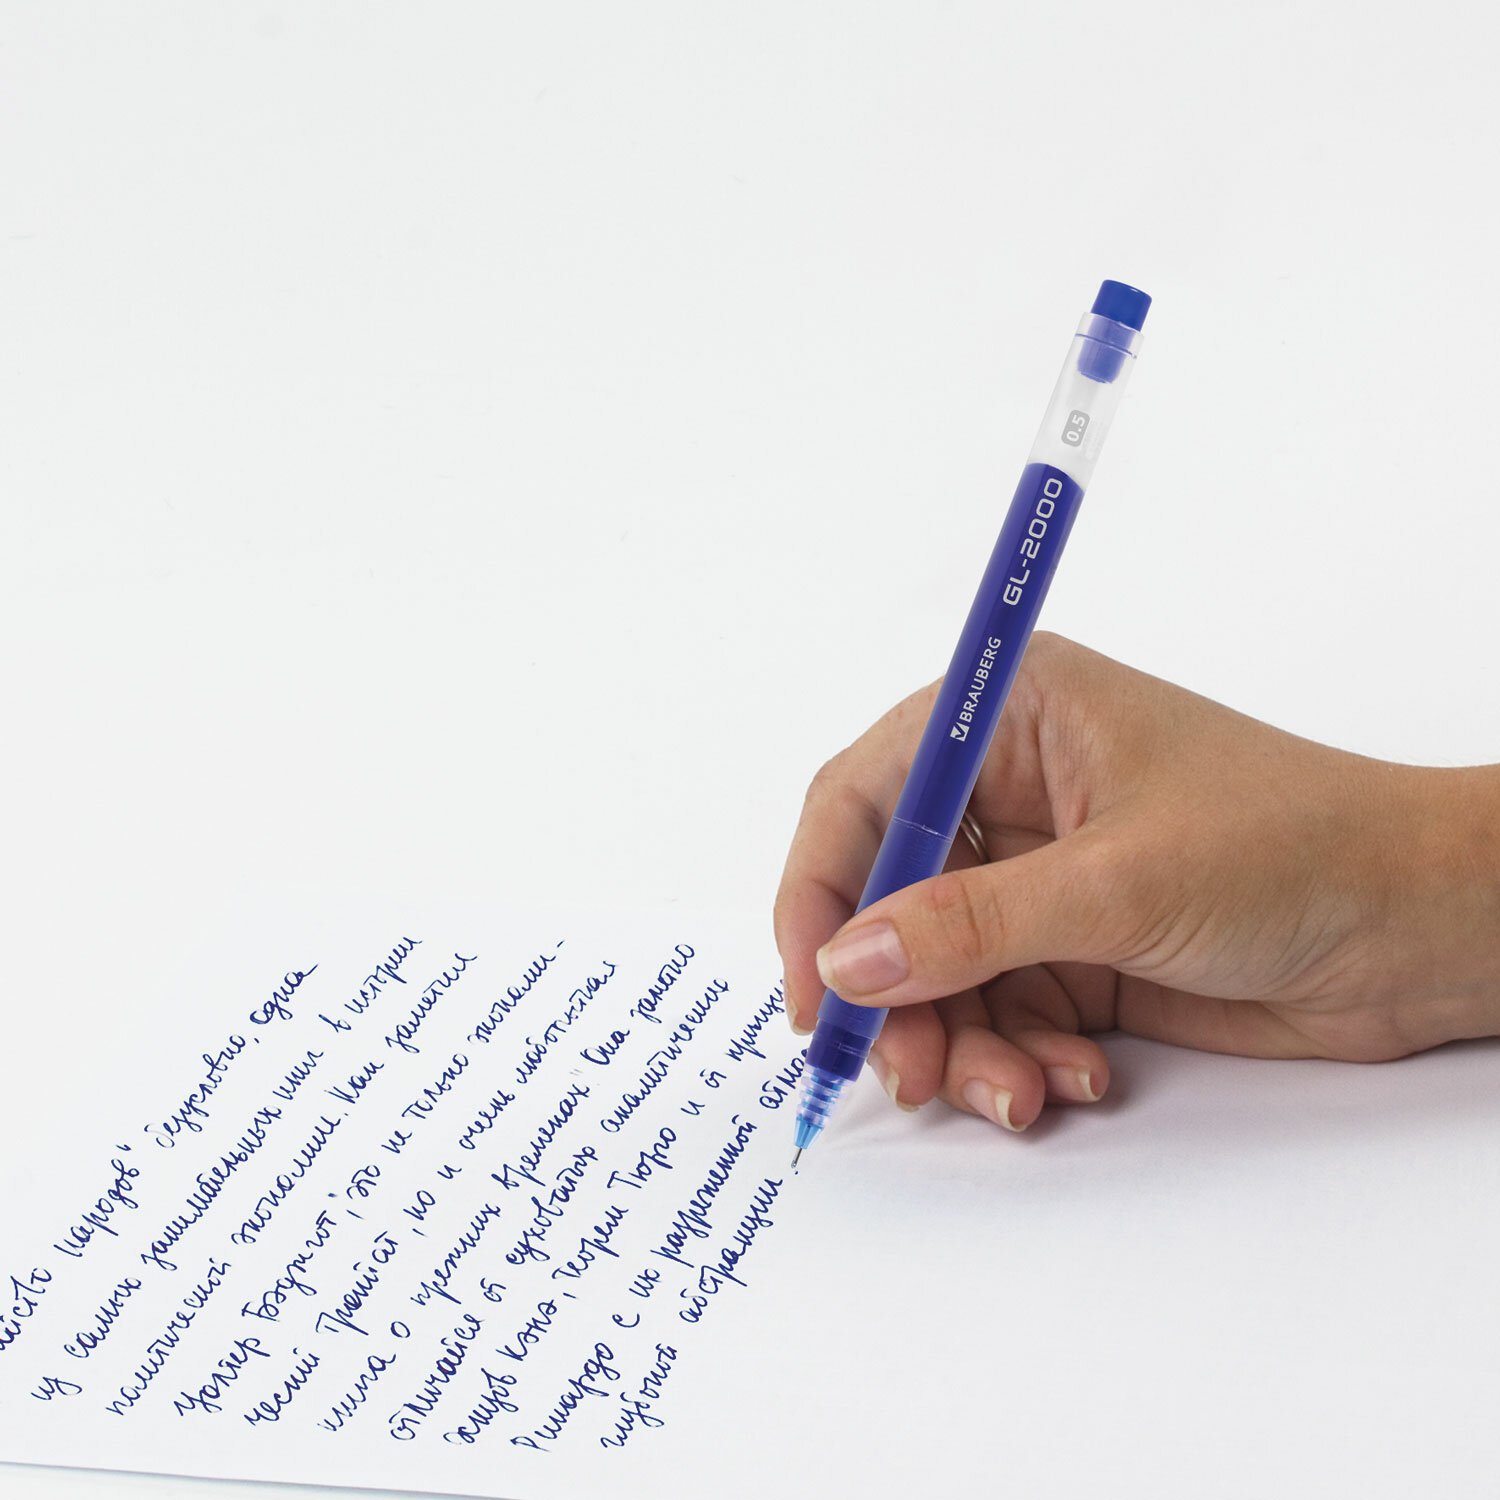 0.5
GL-2000
BRAUBERG
народов" безусловно, одна
из самых занимательных книг в истории
политической экономии. Как заметил
Уолтер Бэджгот, "это не только экономи-
ческий трактат, но и очень любопытная
книга о прежних временах". Она заметно
отличается от суховатых аналитических
эссе́ев Кэнэ, теорем Тюрго и от принци
Рикардо с их разреженной атмос
глубокой абстракции